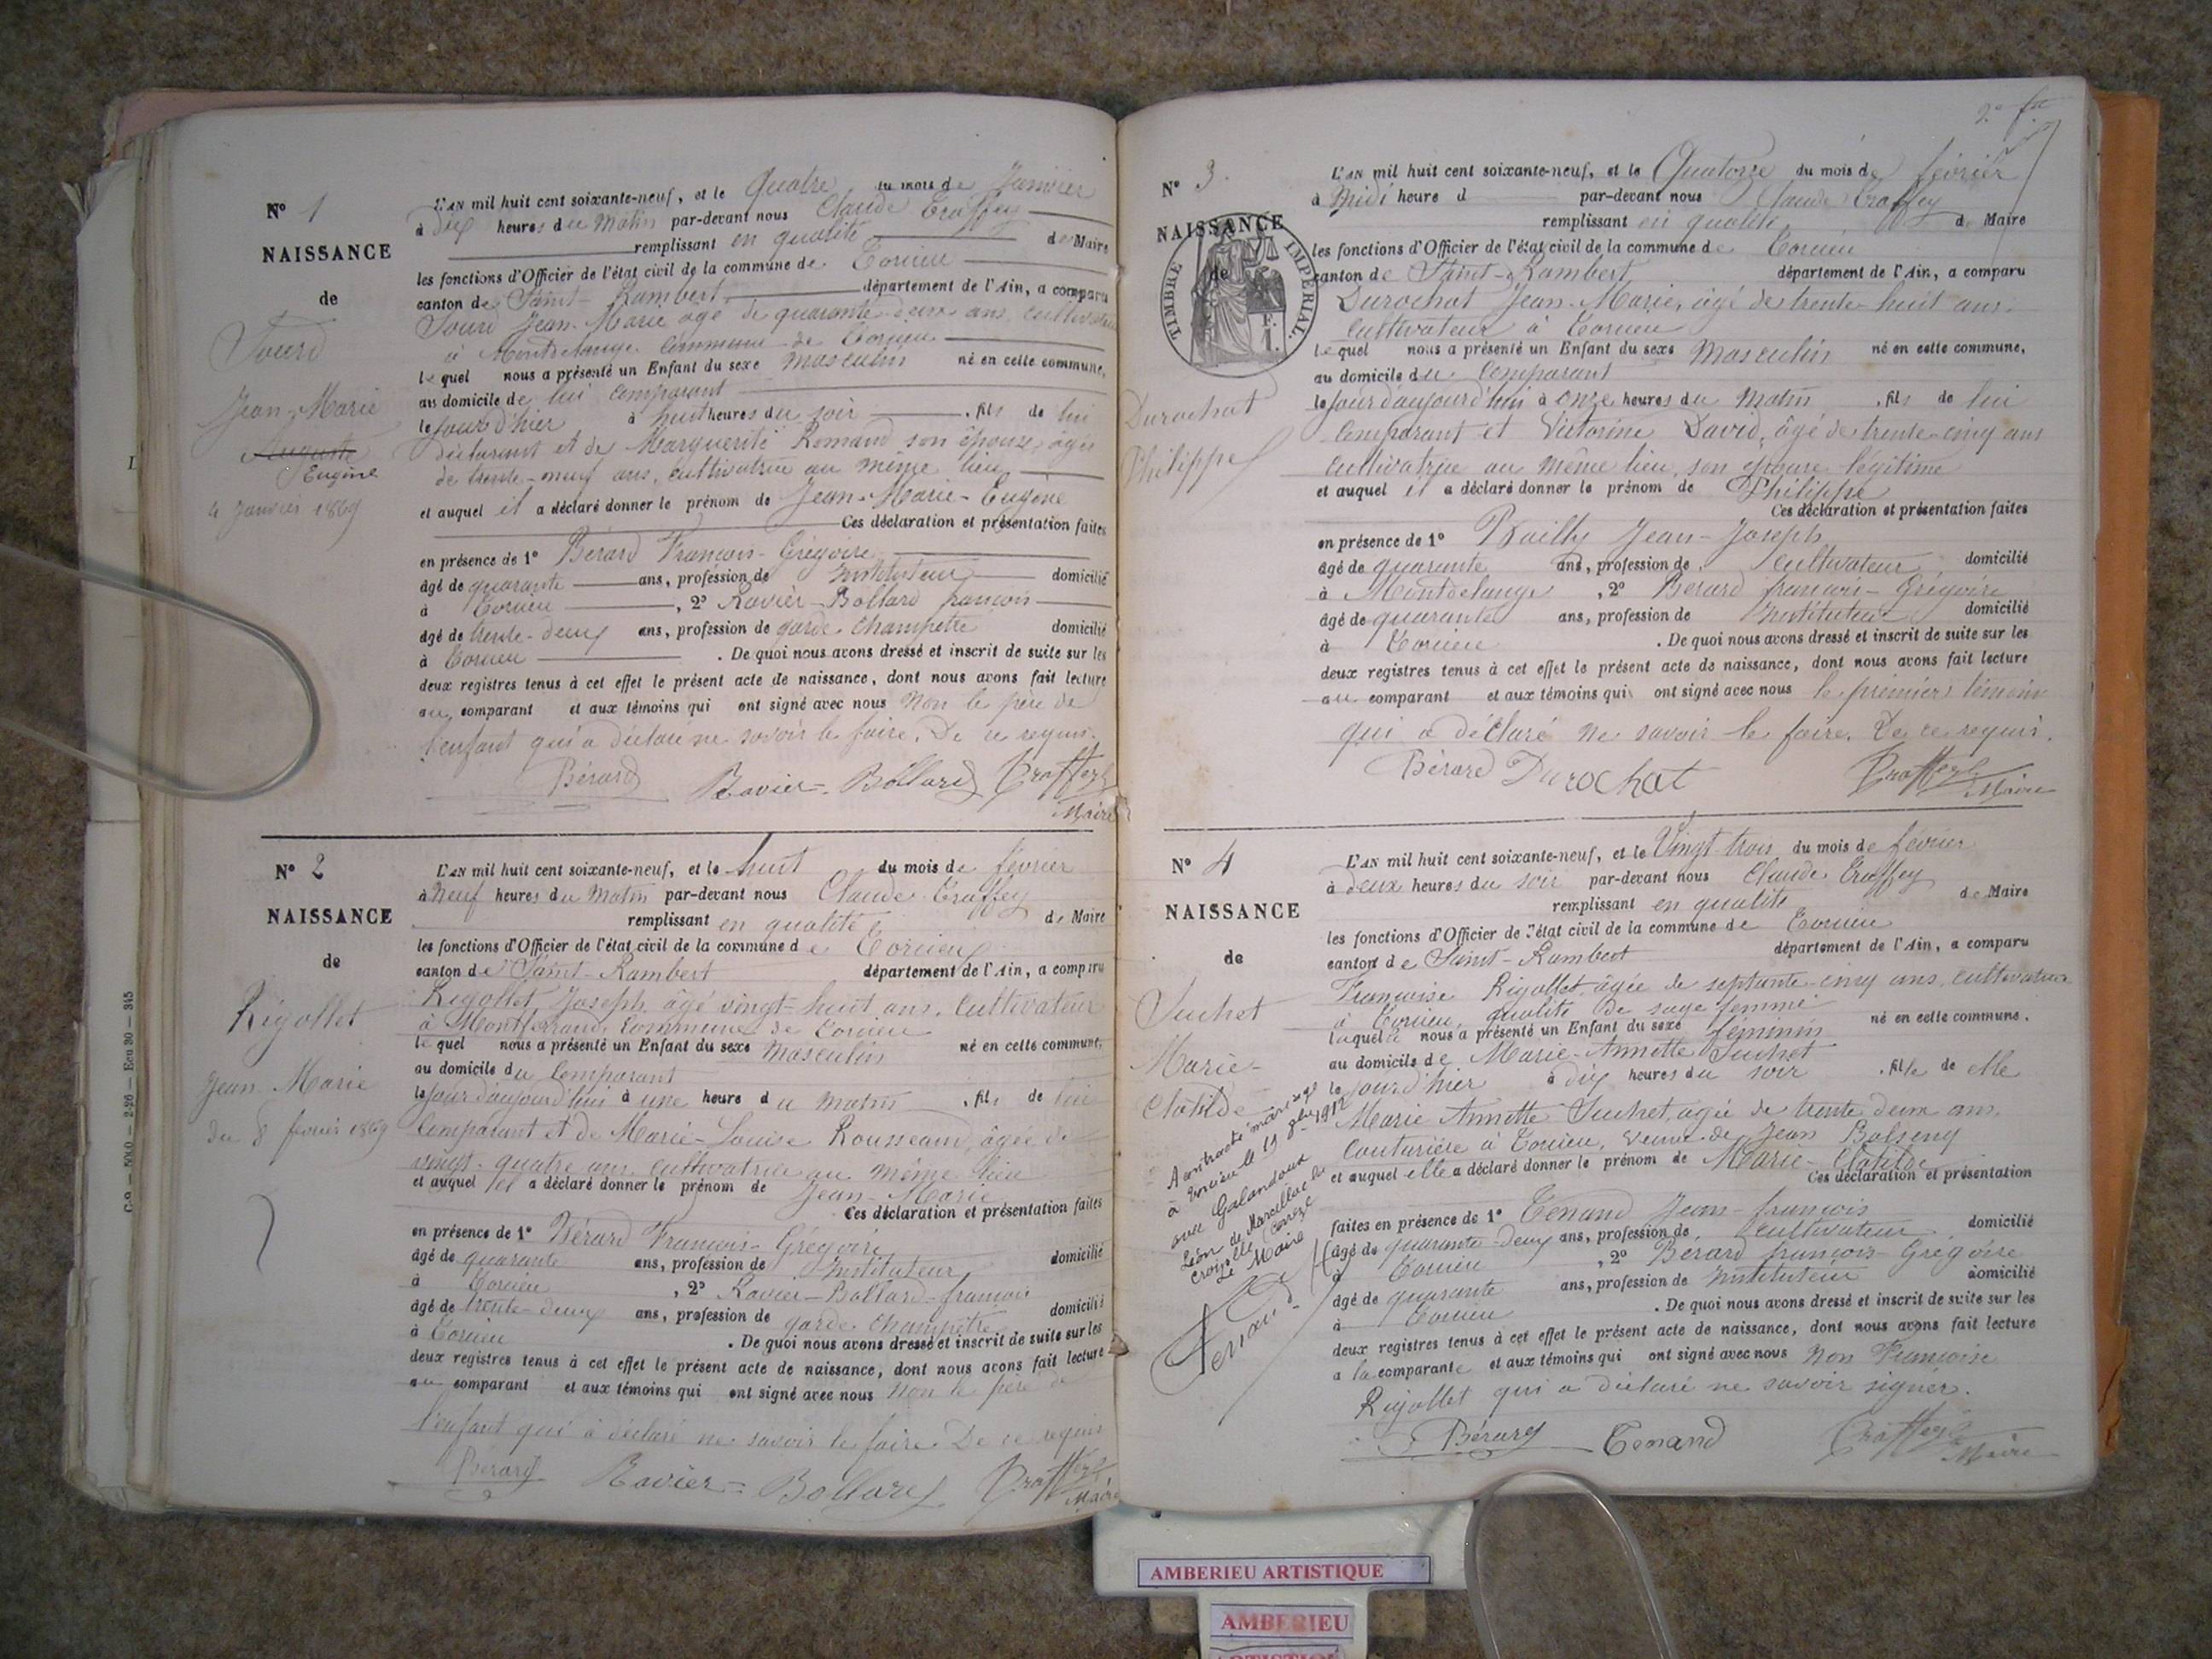 N° 1
NAISSANCE
de
Sourd
Jean-Marie
Auguste
Eugène
4 Janvier 1869
L'AN mil huit cent soixante-neuf, et le Quatre du mois de Janvier
à dix heures du Matin par-devant nous Claude Traffey
remplissant en qualité de Maire
les fonctions d'Officier de l'état civil de la commune de Torcieu
canton de Saint-Rambert département de l'Ain, a comparu
Sourd Jean-Marie âgé de quarante-deux ans, cultivateur
à Montdelange commune de Torcieu
lequel nous a présenté un Enfant du sexe Masculin né en cette commune,
au domicile de lui comparant
le jour d'hier à huit heures du soir, fils de lui
déclarant et de Marguerite Romand son épouse, âgée
de trente-neuf ans, cultivatrice au même lieu
et auquel il a déclaré donner le prénom de Jean-Marie-Eugène
Ces déclaration et présentation faites
en présence de 1° Bérard François-Grégoire
âgé de quarante ans, profession de Instituteur domicilié
à Torcieu, 2° Ravier-Bollard françois
âgé de trente-deux ans, profession de garde-champêtre domicilié
à Torcieu. De quoi nous avons dressé et inscrit de suite sur les
deux registres tenus à cet effet le présent acte de naissance, dont nous avons fait lecture
au comparant et aux témoins qui ont signé avec nous Non le père de
l'enfant qui a déclaré ne savoir le faire. De ce requis.
Bérard Ravier-Bollard Traffey
Maire
N° 2
NAISSANCE
de
Rigollet
Jean-Marie
du 8 février 1869
L'AN mil huit cent soixante-neuf, et le huit du mois de février
à Neuf heures du Matin par-devant nous Claude Traffey
remplissant en qualité de Maire
les fonctions d'Officier de l'état civil de la commune de Torcieu
canton de Saint-Rambert département de l'Ain, a comparu
Rigollet Joseph âgé vingt-huit ans, Cultivateur
à Montferrand, Commune de Torcieu
lequel nous a présenté un Enfant du sexe Masculin né en cette commune,
au domicile du Comparant
le jour d'aujourd'hui à une heure du Matin, fils de lui
Comparant et de Marie-Louise Rousseau, âgée de
vingt-quatre ans, cultivatrice au même lieu
et auquel il a déclaré donner le prénom de Jean-Marie
Ces déclaration et présentation faites
en présence de 1° Bérard François-Grégoire
âgé de quarante ans, profession de Instituteur domicilié
à Torcieu, 2° Ravier-Bollard-françois
âgé de trente-deux ans, profession de garde-champêtre domicilié
à Torcieu. De quoi nous avons dressé et inscrit de suite sur les
deux registres tenus à cet effet le présent acte de naissance, dont nous avons fait lecture
au comparant et aux témoins qui ont signé avec nous Non le père de
l'enfant qui a déclaré ne savoir le faire. De ce requis
Bérard Ravier-Bollard Traffey
Maire
C-9 — 5000 — 2-26 — Ecu 30 — 345
N° 3
NAISSANCE
de
TIMBRE IMPÉRIAL
Durochat
Philippe
L'AN mil huit cent soixante-neuf, et le Quatorze du mois de février
à Midi heure d par-devant nous Claude Traffey
remplissant en qualité de Maire
les fonctions d'Officier de l'état civil de la commune de Torcieu
canton de Saint-Rambert département de l'Ain, a comparu
Durochat Jean-Marie, âgé de trente-huit ans.
Cultivateur à Torcieu
lequel nous a présenté un Enfant du sexe Masculin né en cette commune,
au domicile du Comparant
le jour d'aujourd'hui à onze heures du Matin, fils de lui
Comparant et Victorine David, âgé de trente-cinq ans
Cultivatrice au même lieu, son épouse légitime
et auquel il a déclaré donner le prénom de Philippe
Ces déclaration et présentation faites
en présence de 1° Bailly Jean-Joseph
âgé de quarante ans, profession de cultivateur domicilié
à Montdelange, 2° Bérard françois-Grégoire
âgé de quarante ans, profession de Instituteur domicilié
à Torcieu. De quoi nous avons dressé et inscrit de suite sur les
deux registres tenus à cet effet le présent acte de naissance, dont nous avons fait lecture
au comparant et aux témoins qui ont signé avec nous le premier témoin
qui a déclaré ne savoir le faire. De ce requis.
Bérard Durochat Traffey
Maire
N° 4
NAISSANCE
de
Suchet
Marie-
Clotilde
A contracté mariage
à Torcieu le 19 9bre 1912
avec Galandoux
Léon de Marcillac la
croisille Corrèze
Le Maire
Tenand
L'AN mil huit cent soixante-neuf, et le Vingt-trois du mois de février
à deux heures du soir par-devant nous Claude Traffey
remplissant en qualité de Maire
les fonctions d'Officier de l'état civil de la commune de Torcieu
canton de Saint-Rambert département de l'Ain, a comparu
Françoise Rigollet âgée de septante-cinq ans, cultivatrice
à Torcieu, qualité de sage femme
laquelle nous a présenté un Enfant du sexe féminin né en cette commune,
au domicile de Marie-Annette Suchet
le jour d'hier à dix heures du soir, fille de elle
Marie Annette Suchet, âgée de trente deux ans.
Couturière à Torcieu, veuve de Jean Balseny
et auquel elle a déclaré donner le prénom de Marie-Clotilde
Ces déclaration et présentation
faites en présence de 1° Tenand Jean-françois
âgé de quarante-deux ans, profession de cultivateur domicilié
à Torcieu, 2° Bérard françois-Grégoire
âgé de quarante ans, profession de Instituteur domicilié
à Torcieu. De quoi nous avons dressé et inscrit de suite sur les
deux registres tenus à cet effet le présent acte de naissance, dont nous avons fait lecture
à la comparante et aux témoins qui ont signé avec nous Non Françoise
Rigollet qui a déclaré ne savoir signer.
Bérard Tenand Traffey
Maire
AMBERIEU ARTISTIQUE
AMBERIEU
ARTISTIQUE